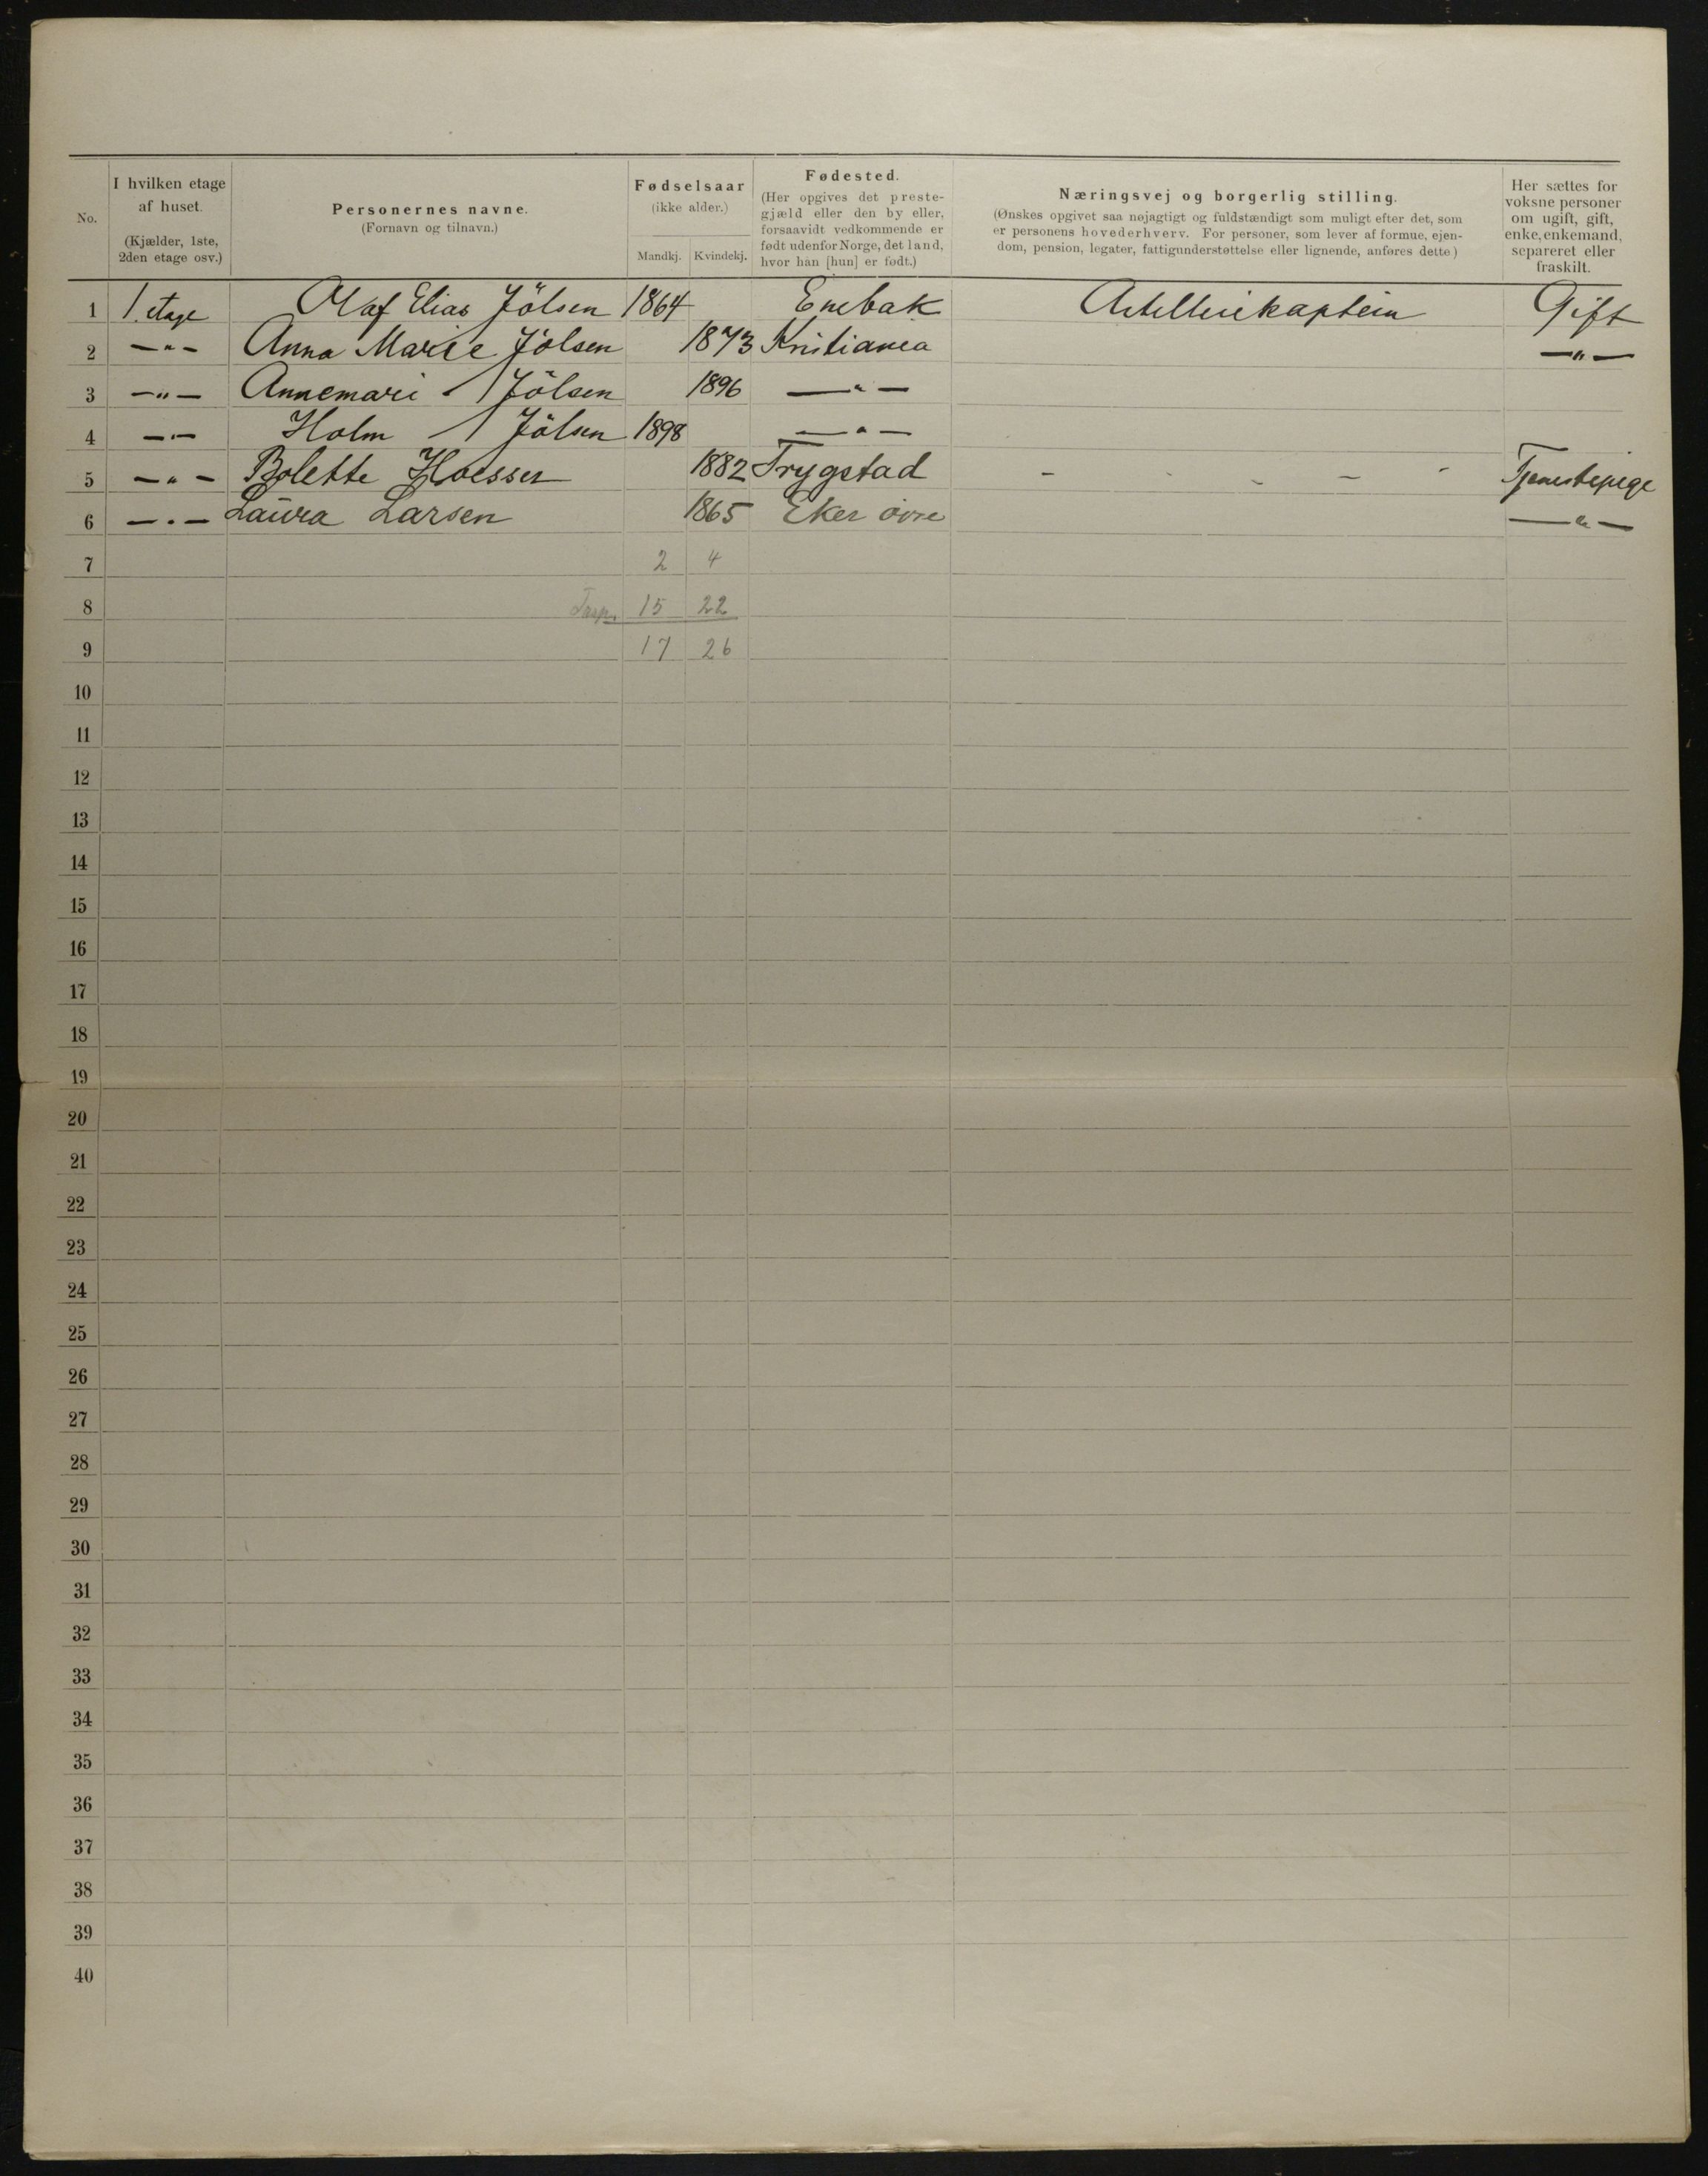 No.
I hvilken etage af huset. (Kjælder, 1ste, 2den etage osv.)
Personernes navne. (Fornavn og tilnavn.)
Fødselsaar (ikke alder.) Mandkj. Kvindekj.
Fødested. (Her opgives det prestegjæld eller den by eller, forsaavidt vedkommende er født udenfor Norge, det land, hvor han [hun] er født.)
Næringsvej og borgerlig stilling.
(Ønskes opgivet saa nøjagtigt og fuldstændigt som muligt efter det, som
er personens hovederhverv. For personer, som lever af formue, ejen-
dom, pension, legater, fattigunderstøttelse eller lignende, anføres dette)
Her sættes for voksne personer om ugift, gift, enke, enkemand, separeret eller fraskilt.
1 1 etage Olaf Elias Jölsen 1864 Enebak Artillerikaptein Gift
2 —"— Anna Marie Jölsen 1873 Kristiania —"—
3 —"— Annemari / Jölsen 1896 —"—
4 —"— Holm / Jölsen 1898 —"—
5 —"— Bolette 1882 Trygstad - - - - - Tjenestepige
6 —"— Laura Larsen 1865 Eker övre —"—
7 2 4
8 15 22
9 17 26
10
11
12
13
14
15
16
17
18
19
20
21
22
23
24
25
26
27
28
29
30
31
32
33
34
35
36
37
38
39
40